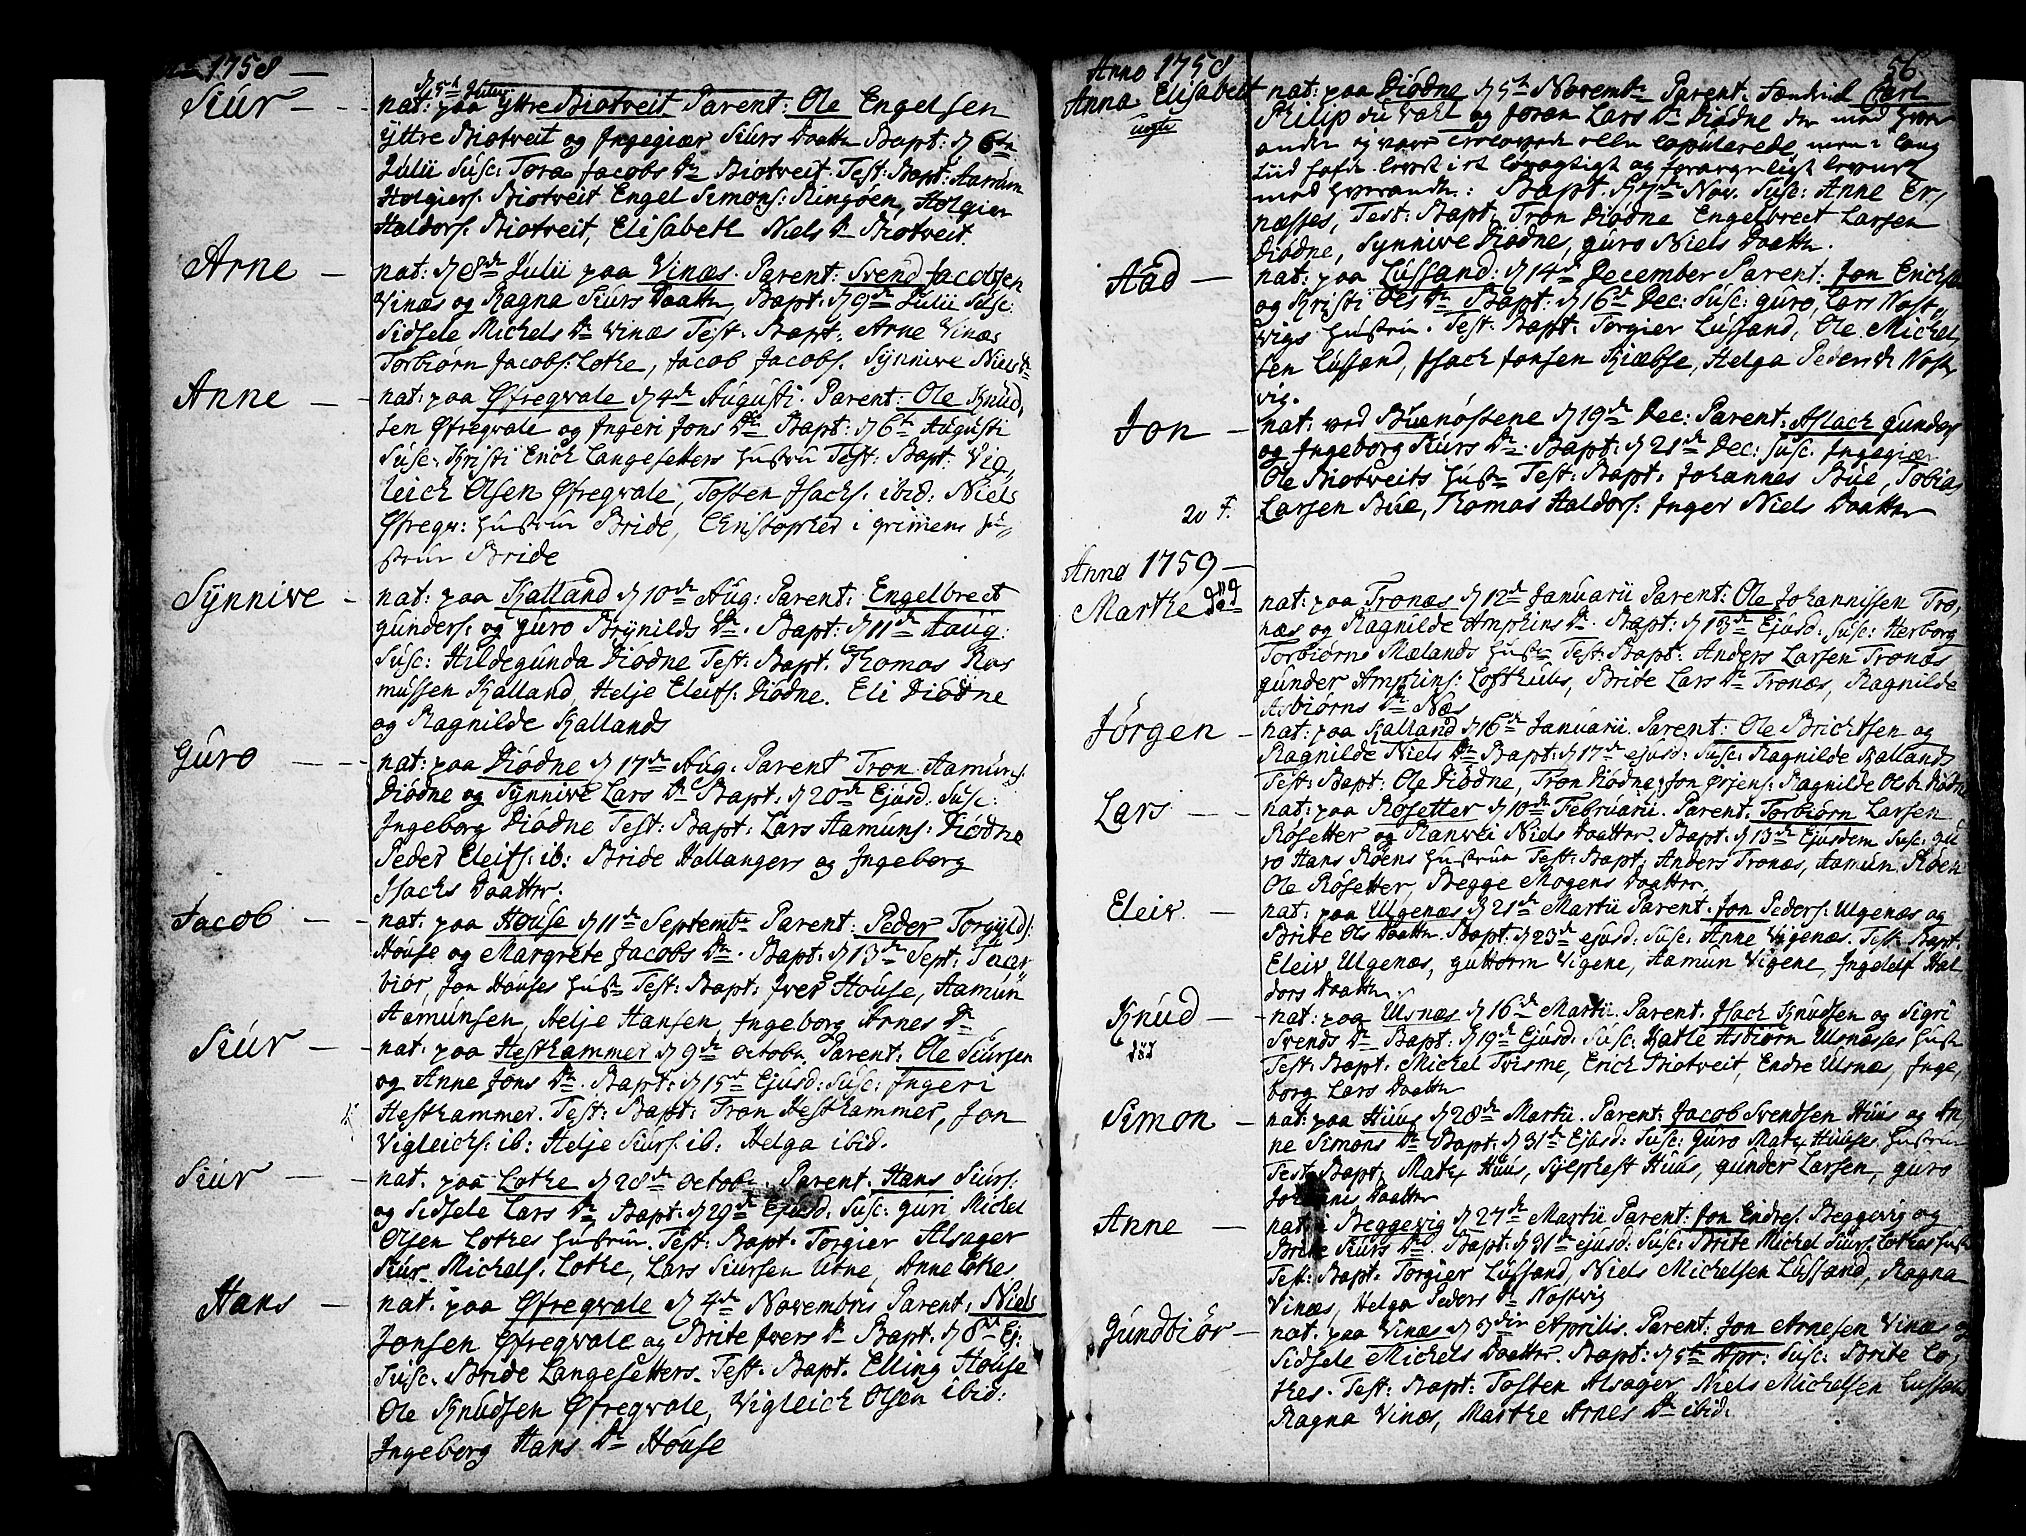 1758
Siur - - nat: paa Yttre Biotveit Parent: Ole Engelsen
d 5th Julii
Yttre Biotveit og Ingegiær Siurs Daatter Bapt: d 6te
Julii Susc: Tora Jacobs Dr Biotveit. Test: Bapt: Aamun
Holgiers: Biotveit Engel Simons: Ringøen, Holgier
Haldors: Biotveit, Elisabeth Niels Dr Biotveit.
Arne - nat: d 8de Julii paa Vinæs. Parent: Svend Jacobsen
Vinæs og Ragna Siurs Daatter, Bapt: d 9de Julii Susc:
Sidsele Michels Dr Vinæs Test: Bapt: Arne Vinæs
Torbiørn Jacobs: Lothe, Jacob Jacobs. Synnive Niels Dr
Anne - - nat: paa Øfregvale d 4de Augusti. Parent: Ole Knud,
sen Øfregvale og Ingeri Jons Dr Bapt: d 6te Augusti
Susc: Kristi Erich Langesetters Hustru Test: Bapt: Vig,,
leich Olsen Øfregvale, Tosten Isachs: ibid: Niels
Øfregv: Hustrue Bride, Christopher i grimens Hu,,
strue Bride
Synnive - nat: paa Kalland d 10de Aug: Parent: Engelbrect
gunders: og Guro Brynilds Dr. Bapt: d 11de Aug:
Susc: Hildegunda Diødne Test: Bapt. Thomas Ras
mussen Kalland, Helje Eleifs: Diødne. Eli Diødne
og Ragnilde Kallands
Guro - - - nat: paa Diødne d 17de Aug. Parent Tron Aamuns:
Diødne og Synnive Lars Dr Bapt: d 20de Ejusd: Susc:
Ingeborg Diødne Test: Bapt: Lars Aamuns: Diødne
Peder Eleifs: ib: Bride Hallangers og Ingeborg
Isachs Daatter.
Jacob - - nat: paa House d 11de Septembr Parent: Peder Torgylds:
House og Margrete Jacobs Dr. Bapt: d 13de Sept: Susc:
biør, Jon Houses Hustr Test: Bapt: Iver House, Aamun
Aamunsen, Helje Hansen, Ingeborg Arnes Dr
Siur - - nat: paa Hesthammer d 9de Octobr Parent: Ole Siursen
og Anne Jons Dr. Bapt: d 15de Ejusd: Susc: Ingeri
Hesthammer. Test: Bapt: Tron Hesthammer, Jon
Vigleichs: ib: Helje Siurs: ib: Helga ibid.
Siur - - nat: paa Lothe d 28de Octobr. Parent: Hans Siurs:
og Sidsele Lars Dr Bapt: d 29de Ejusd: Susc: Guri Michel
Olsen Lothes Hustrue. Test: Bapt: Torgier Alsager
Siur Michels: Lothe, Lars Siursen Utne, Anne Lothes
Hans - nat: paa Øfregvale d 4de Novembris Parent: Niels
Jonsen Øfregvale og Brite Ivers Dr Bapt. d 6te Ej:
Susc. Bride Langesetters. Test: Bapt. Elling House
Ole Knudsen Øfregvale, Vigleich Olsen ibid:
Ingeborg Hans Dr House
56.
Anno 1758
Anna Elisabet nat: paa Diødne d 5te Novembr Parent: Carl
uegte Philip du Vahl og Joran Lars Dr Diødne der med hver
anden ej vare trolovede eller copulerede men i lang
tiid hafde levet
med hverandre: Bapt. Nov. Susc: Anne Er,
næsses, Test: Bapt: Tron Diødne Engelbrect Larsen
Diødne, Synnive Diødnes, Guro Niels Daatter.
Aad - nat: paa Lussand: d 14de December Parent: Jon Erichs:
og Kristi Ols Dr Bapt: d 16de Dec: Susc: Guro, Lars Nost,,
vigs Hustrue. Test: Bapt: Torgier Lussand, Ole Michel,
sen Lussand, Isach Jonsen Kiæbse, Helga Peders Dr Nost
vig.
Jon - nat: ved Buenøstene d 19de Dec: Parent: Aslach gunders
og Ingeborg Siurs Dr. Bapt: d 21de Dec: Susc: Ingegiær
Ole Biotveits Hustr Test: Bapt: Johannes Bue, Tobias
20 F. Larsen Bue, Thomas Haldors: Inger Niels Daatter
Anno 1759 -
Marthe nat: paa Tronæs d 12de Januarii Parent: Ole Johannissen Tro,
næs og Ragnilde Amphins Dr. Bapt: d 13de Ejusd: Susc: Herborg
Torbiørns Mælands Hustr Test: Bapt: Anders Larsen Tronæs
gunder Amphins: Lofthuus, Bride Lars Dr Tronæs, Ragnilde
Asbiørns Dr Næs
Jørgen - nat: paa Kalland d 16de Januarii Parent: Ole Brichtsen og
Ragnilde Niels Dr Bapt: d 17de ejusd: Susc: Ragnilde Kallands
Test: Bapt: Ole Diødne, Tron Diødne, Jon Ørjens: Ragnilde Ols Dr Diødne
Lars - - nat: paa Røsetter d 10de Februarii. Parent: Torbiørn Larsen
Røsetter og Ranvei Niels Daatter. Bapt: d 13de Ejusdem Susc: gu
ro Hans Røens Hustrue Test: Bapt: Anders Tronæs, Aamun Røen
Ole Røsetter, Begge Mogens Daatter.
Eleiv. - nat: paa Ulgenæs d 21de Martii Parent: Jon Peders: Ulgenæs og
Brite Ols Daatter. Bapt: d 23de ejusd: Susc: Anne Vigenæs. Test: Bapt.
Eleiv Ulgenæs, Guttorm Vigene, Aamun Vigene, Ingelef Hal
dors Daatter.
Knud - - nat: paa Ulsnæs d 16de Martii. Parent. Isach Knudsen og Sigri
Svends Dr Bapt: d 19de Ejusd: Susc: Katle Asbiørn Ulsnæsses Hustr
Test: Bapt. Michel Trisme, Erich Biotveit, Endre Ulsnæs, Inge,
borg Lars Daatter
Simon - nat: paa Huus d 28de Martii. Parent: Jacob Svendsen Huus og An,
ne Simons Dr Bapt: d 31de Ejusd: Susc: Guro Mats Huuses Hustrue
Test: Bapt: Mats Huus, Sylphest Huus, gunder Larsen, guro
Johannis Daatter
Anne - nat: i Beggevig d 27de Martii Parent: Jon Endres: Beggevig og
Brite Siurs Dr. Bapt: d 31de ejusd: Susc: Brite Michel Siurs: Lothes Hustr
Test: Bapt: Torgier Lussand, Niels Michelsen Lussand, Ragna
Vinæs, Helga Peders Dr Nostvig
Gundbiør - nat: paa Vinæs d 3die Aprilis. Parent: Jon Arnesen Vinæs og
Sidsele Michels Daatter. Bapt: d 5te Apr: Susc: Brite Lo,
thes. Test: Bapt: Tosten Alsager Niels Michelsen Lussand
Ragna Vinæs, Marthe Arnes Dr ibid: